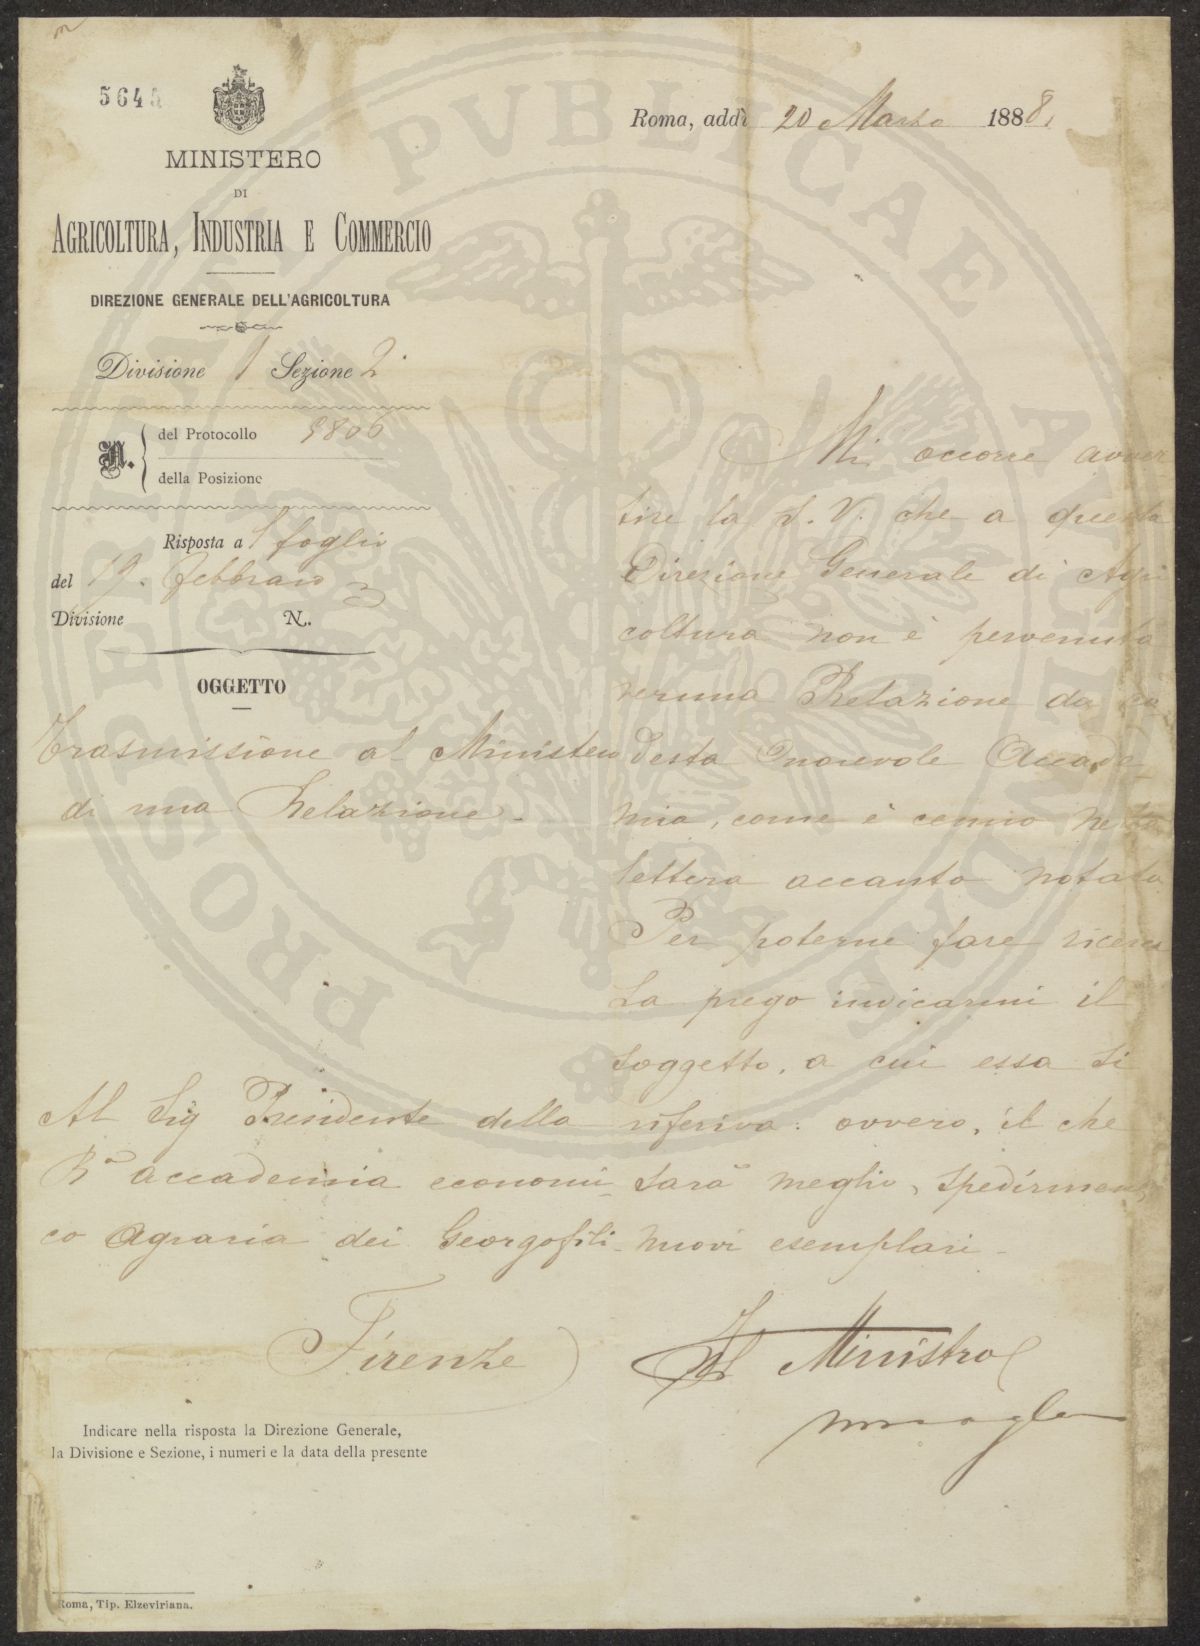 5645
MINISTERO
DI
AGRICOLTURA, INDUSTRIA E COMMERCIO
DIREZIONE GENERALE DELL'AGRICOLTURA
Divisione 1 Sezione 2
N. del Protocollo 9806
della Posizione
Risposta a 1 foglio
del 19. Febbraio
Divisione N.
OGGETTO
Trasmissione al Ministero
di una Relazione.
Al Sig Presidente della
Ra accademia economi
co Agraria dei Georgofili
Firenze
Indicare nella risposta la Direzione Generale,
la Divisione e Sezione, i numeri e la data della presente
Roma, Tip. Elzeviriana.
Roma, addì 20 Marzo 1888.
Mi occorre avver
tire la S. V. che a questa
Direzione Generale di Agri
coltura non è pervenuta
veruna Relazione da co
desta Onorevole Accade
mia, come è cenno nella
lettera accanto notata.
Per poterne fare ricerca
La prego indicarmi il
soggetto, a cui essa si
riferiva: ovvero, il che
sarà meglio, spedirmene
nuovi esemplari.
Il Ministro
PROSPERITATI PVBLICAE AVGENDAE